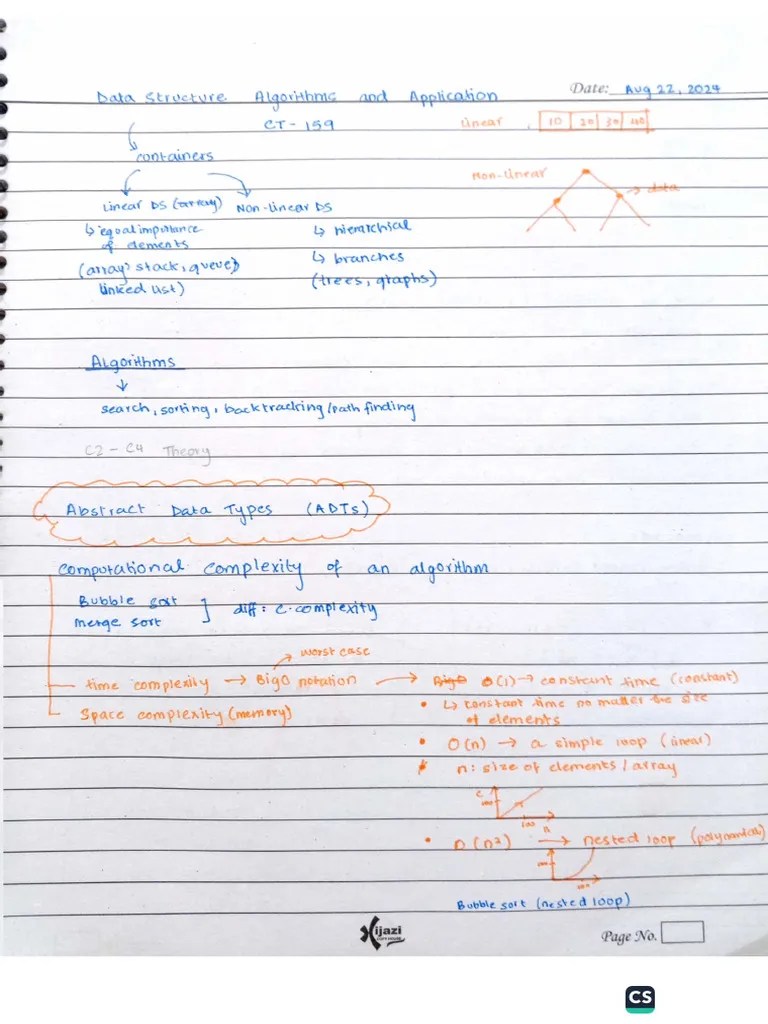 Date: Aug 22, 2024
Data Structure Algorithms and Application
CT - 159
containers
Linear DS (array)
↳ equal importance
of elements
(array, stack, queue,
linked list)
Non-linear DS
↳ hierarchial
↳ branches
(trees, graphs)
Linear 10 20 30 40
Non-linear
→ data
Algorithms
↓
search, sorting, backtracking/path finding
C2 - C4 Theory
Abstract Data Types (ADTs)
Computational Complexity of an algorithm
Bubble sort
merge sort
] diff: c.complexity
worst case
time complexity → BigO notation → BigO O(1) → constant time (constant)
Space complexity (memory)
• ↳ constant time no matter the size
of elements
• O(n) → a simple loop (linear)
n: size of elements / array
c
100
100
n
• n(n²) → nested loop (polynomial)
100
100
Bubble sort (nested loop)
Hijazi
SOFT HOUSE
Page No.
CS